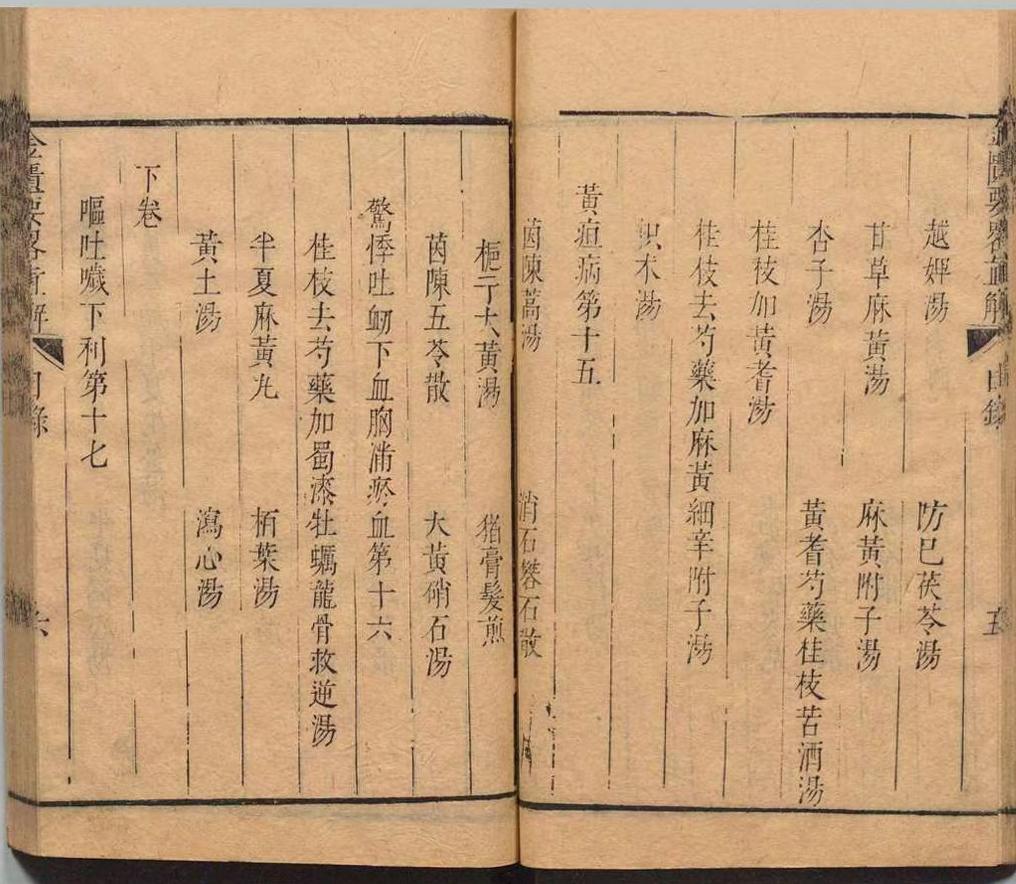 越婢湯
防已茯苓湯
甘草麻黃湯
麻黃附子湯
杏子湯
黃耆芍藥桂枝苦酒湯
桂枝加黃耆湯
桂枝去芍藥加麻黃細辛附子湯
枳朮湯
黃疸病第十五
茵陳蒿湯
消石礬石散
梔子大黃湯
猪膏髮煎
茵陳五苓散
大黃硝石湯
驚悸吐衂下血胸滿瘀血第十六
桂枝去芍藥加蜀漆牡蠣龍骨救逆湯
半夏麻黃丸
栢葉湯
黃土湯
瀉心湯
下卷
嘔吐噦下利第十七
目錄
六